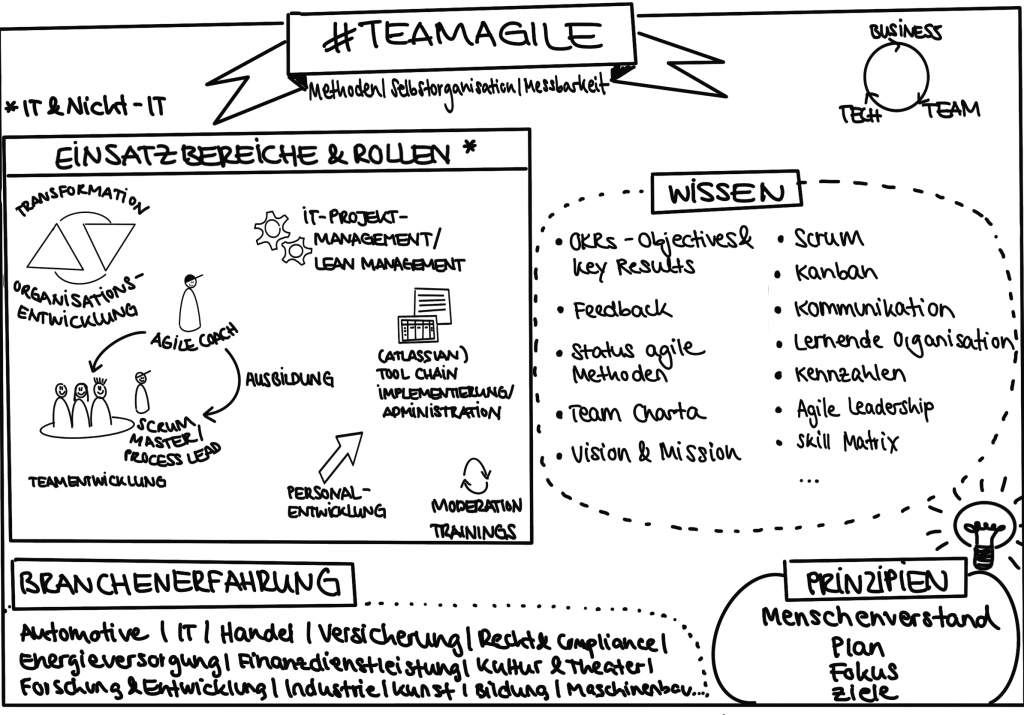 #TEAMAGILE
Methoden/Selbstorganisation/Messbarkeit
BUSINESS
TECH
TEAM
*IT & Nicht-IT
EINSATZBEREICHE & ROLLEN *
TRANSFORMATION
ORGANISATIONS-
ENTWICKLUNG
IT-PROJEKT-
MANAGEMENT/
LEAN MANAGEMENT
AGILE COACH
AUSBILDUNG
SCRUM
MASTER/
PROCESS LEAD
TEAMENTWICKLUNG
(ATLASSIAN)
TOOL CHAIN
IMPLEMENTIERUNG/
ADMINISTRATION
PERSONAL-
ENTWICKLUNG
MODERATION
TRAININGS
WISSEN
• OKRs - Objectives &
Key Results
• Feedback
• Status agile
Methoden
• Team Charta
• Vision & Mission
• Scrum
• Kanban
• Kommunikation
• Lernende Organisation
• Kennzahlen
• Agile Leadership
• Skill Matrix
...
BRANCHENERFAHRUNG
Automotive | IT | Handel | Versicherung | Recht & Compliance |
Energieversorgung | Finanzdienstleistung | Kultur & Theater |
Forschung & Entwicklung | Industrie | Kunst | Bildung | Maschinenbau...
PRINZIPIEN
Menschenverstand
Plan
Fokus
Ziele